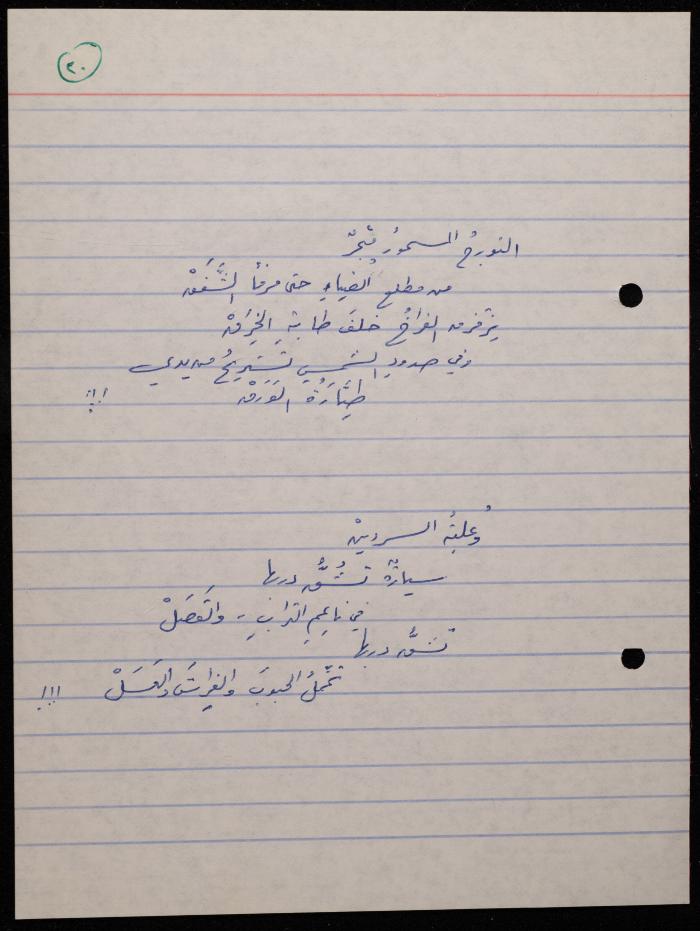 ٣٠
النورجُ المسحورُ مُبْحِرٌ
من مطلعِ الضياءِ حتى مرفأ الشَّفَقْ
يزقزقه الفراخُ خلفَ طابةِ الخِرَقْ
وفي حدودِ الشمسِ تستريحُ من يدي
طيَّارَةُ الوَرَقْ !!!
وعلبةُ السردينْ
سيارةٌ تشُقُّ دربها
في ناعمِ الترابِ، والقَصَلْ
تشقُّ دربها
تحملُ الحبوبَ والفِراشَ والعَسَلْ !!!